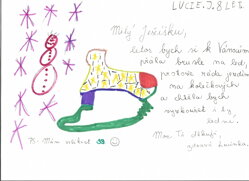 LUCIE, 8 LET
Milý Ježíšku,
letos bych si k Vánocům
přála brusle na led,
protože ráda jezdím
na kolečkových
a chtěla bych
vyzkoušet i ty
lední.
Moc Ti děkuji,
Lucinka.
PS: Mám velikost 33